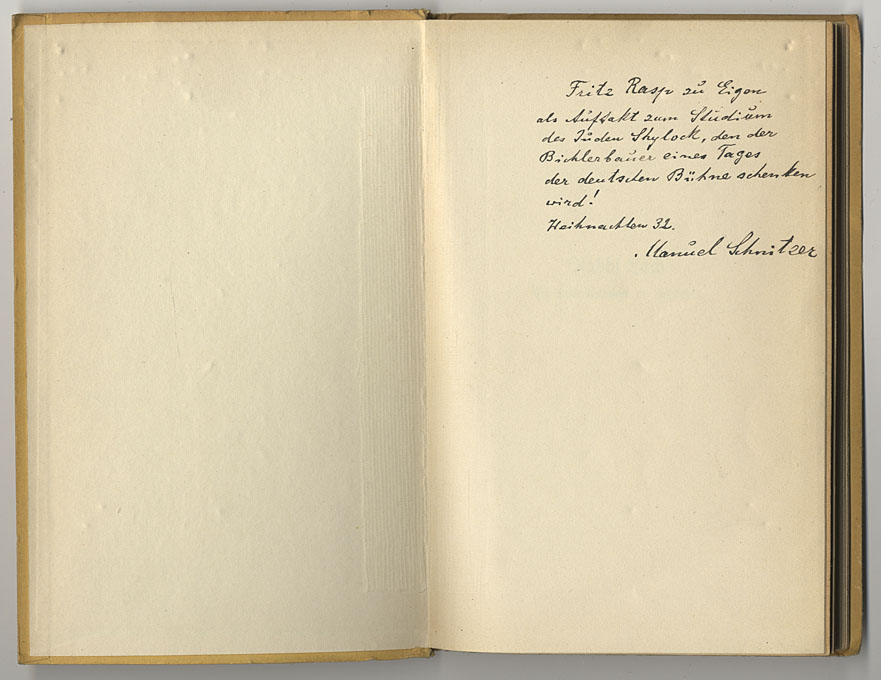 Fritz Rasp zu Eigen
als Auftakt zum Studium
des Juden Shylock, den der
Bichlerbauer eines Tages
der deutschen Bühne schenken
wird!
Weihnachten 32.
Manuel Schnitzer